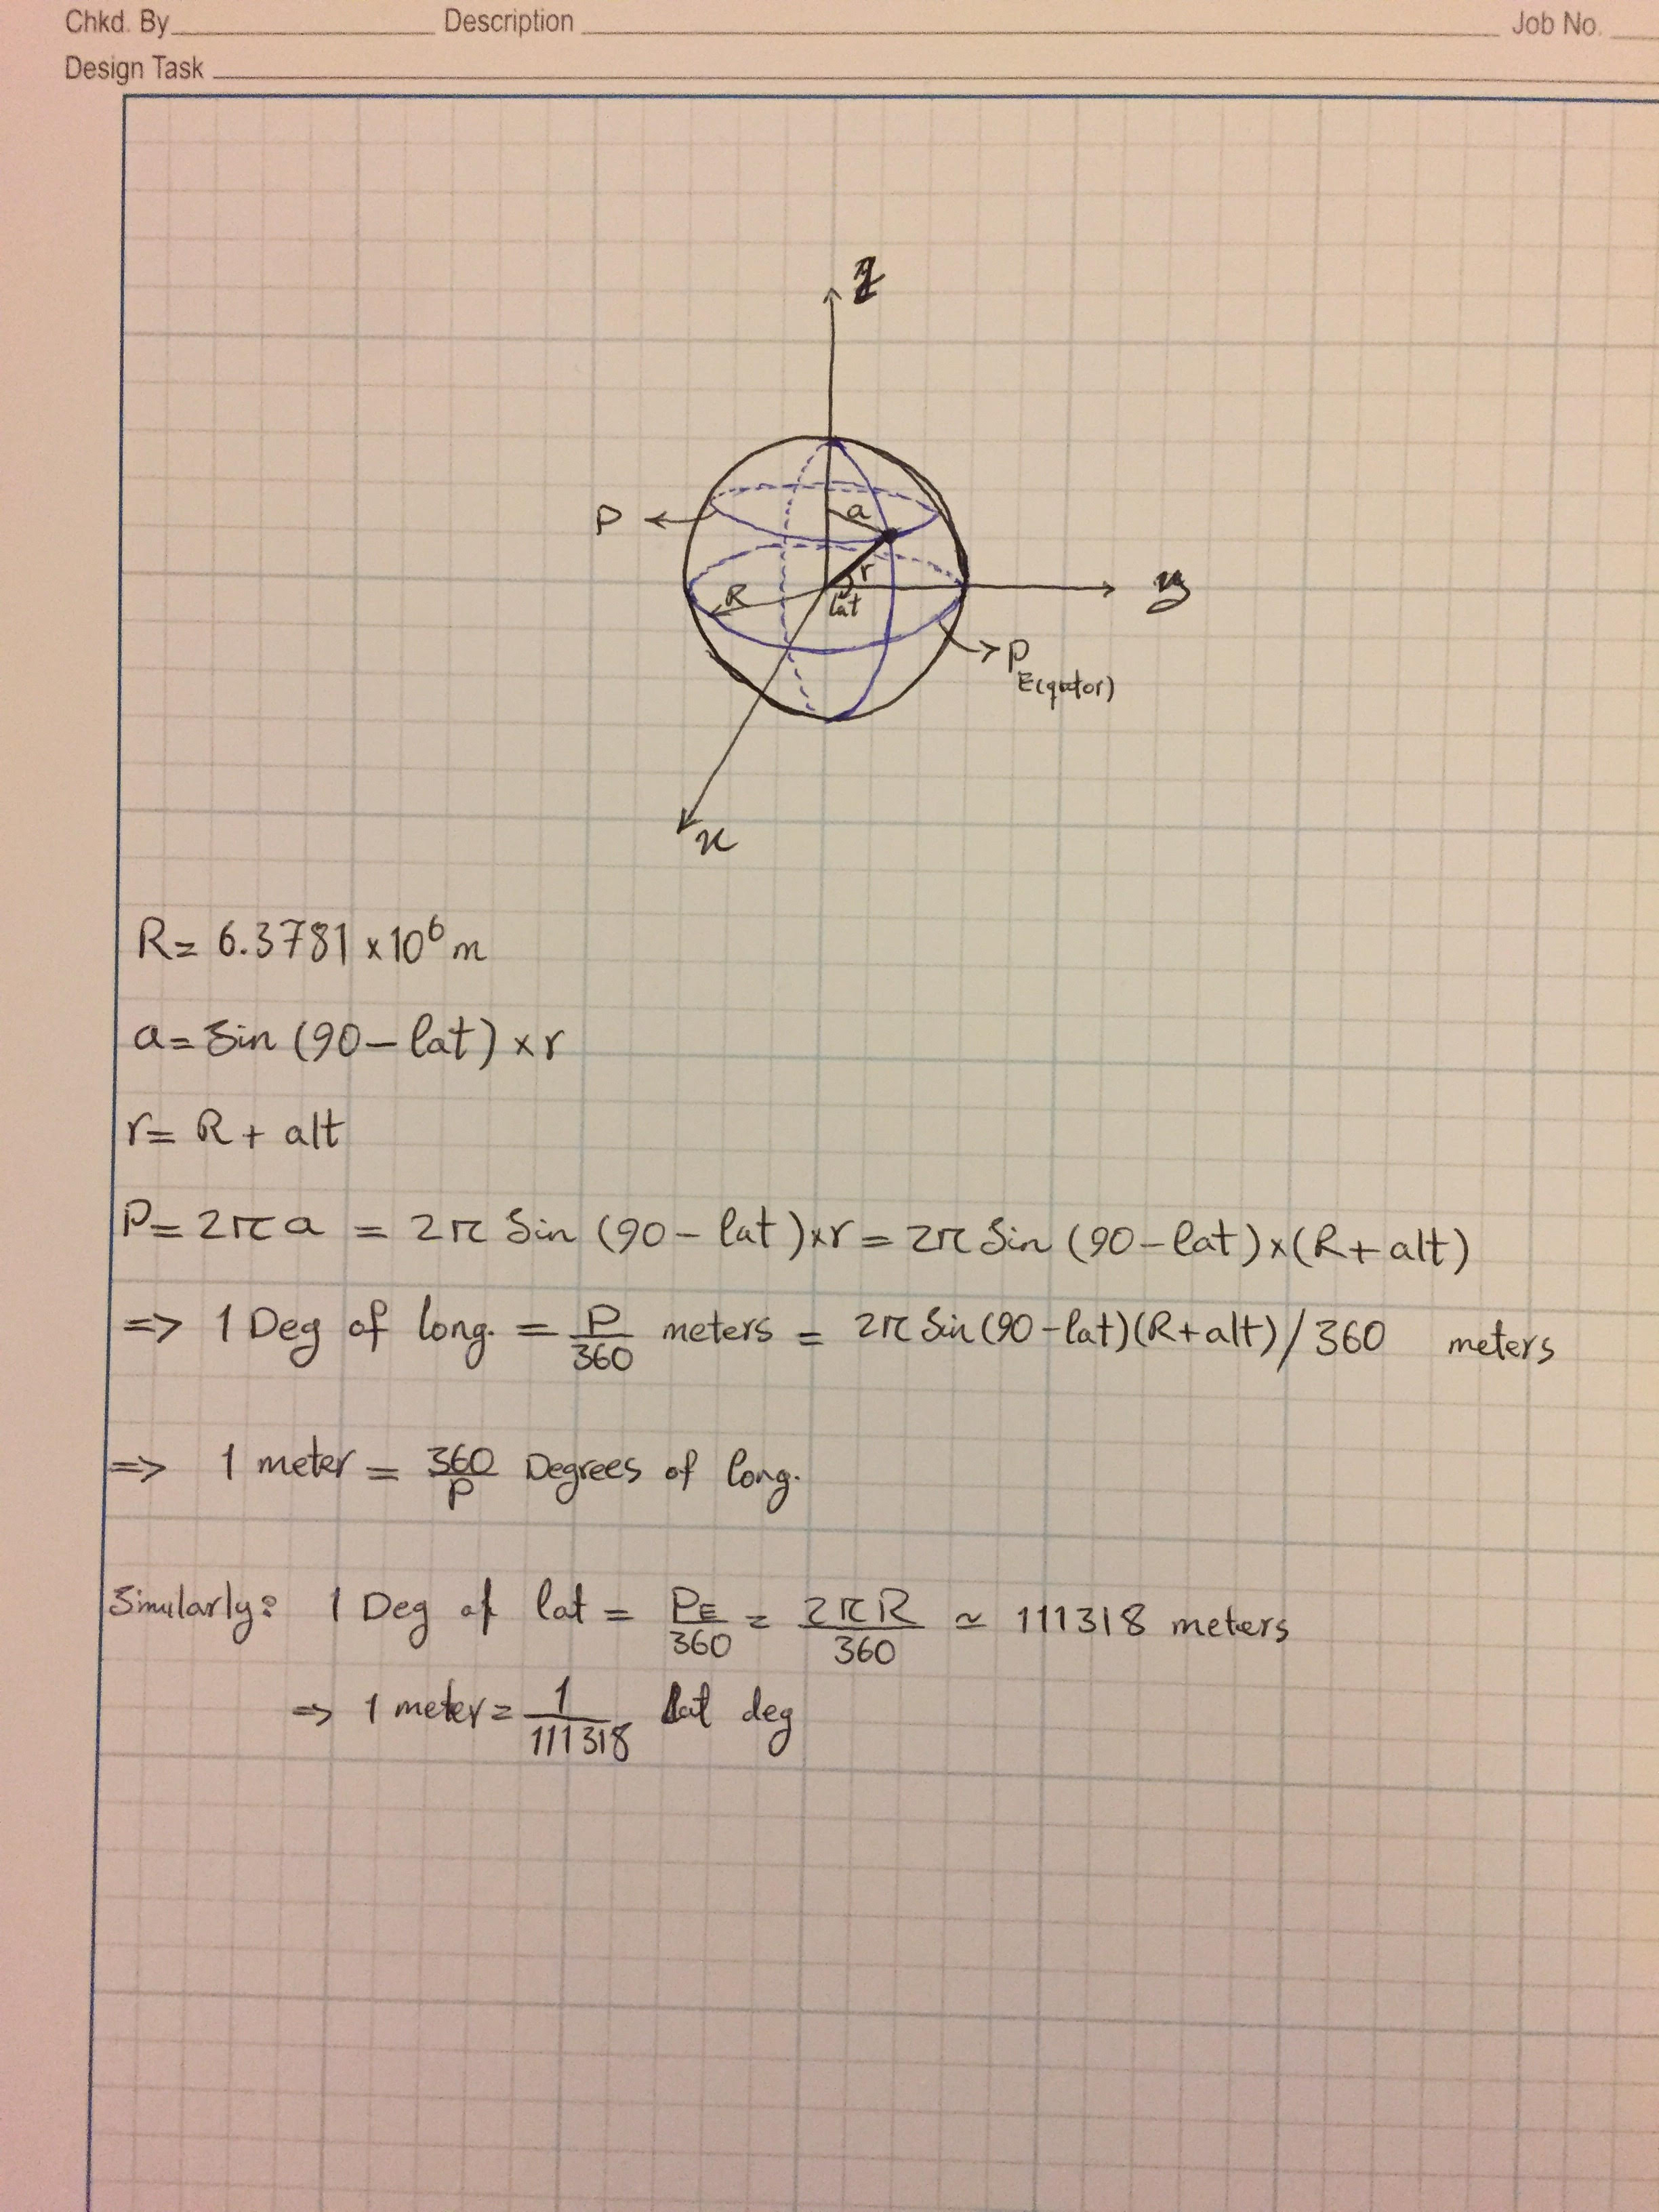 Chkd. By Description Job No.
Design Task
z
P
a
r
R
lat
y
P
E(qator)
x
R= 6.3781 ×10⁶ m
a= Sin (90 – lat) × r
r= R + alt
P= 2π a = 2π Sin (90 – lat)×r = 2π Sin (90 – lat)×(R+ alt)
=> 1 Deg of long. = P/360 meters = 2π Sin(90 – lat)(R+alt)/360 meters
=> 1 meter = 360/P Degrees of long.
Similarly: 1 Deg of lat = P_E/360 = 2πR/360 ≃ 111318 meters
=> 1 meter = 1/111318 Lat deg